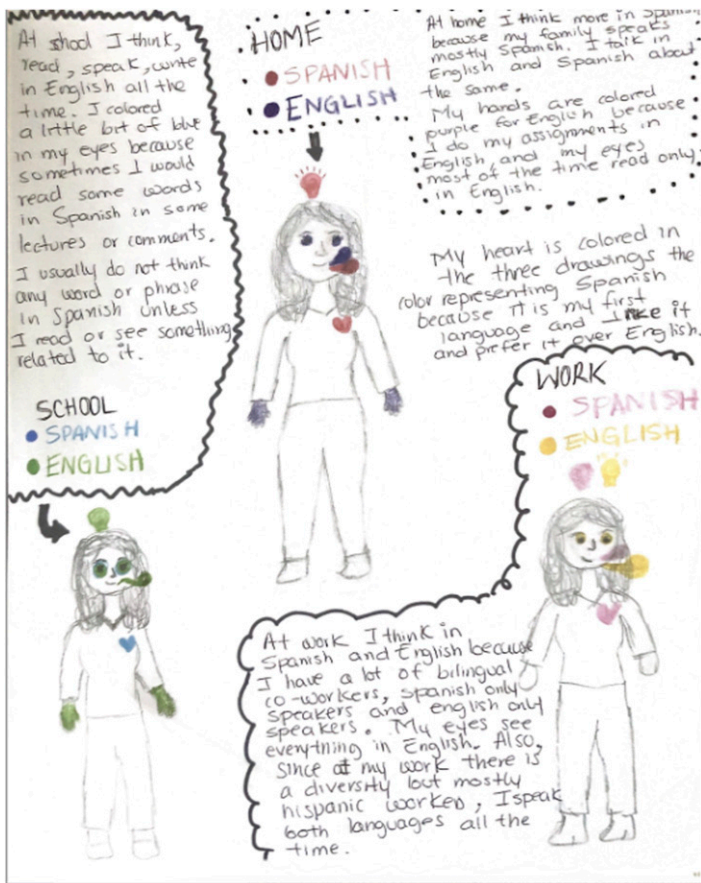 At shool I think,
read, speak, write
in English all the
time. I colored
a little bit of blue
in my eyes because
sometimes I would
read some words
in Spanish in some
lectures or comments.
I usually do not think
any word or phrase
in Spanish unless
I read or see something
related to it.
SCHOOL
SPANISH
ENGLISH
HOME
SPANISH
ENGLISH
At home I think more in Spanish
because my family speaks
mostly Spanish. I talk in
English and Spanish about
the same.
My hands are colored
purple for English because
I do my assignments in
English, and my eyes
most of the time read only
in English.
My heart is colored in
the three drawings the
color representing Spanish
because it is my first
language and I like it
and prefer it over English.
WORK
SPANISH
ENGLISH
At work I think in
Spanish and English because
I have a lot of bilingual
co-workers, spanish only
speakers and english only
speakers. My eyes see
everything in English. Also,
since at my work there is
a diversity but mostly
hispanic workers, I speak
both languages all the
time.